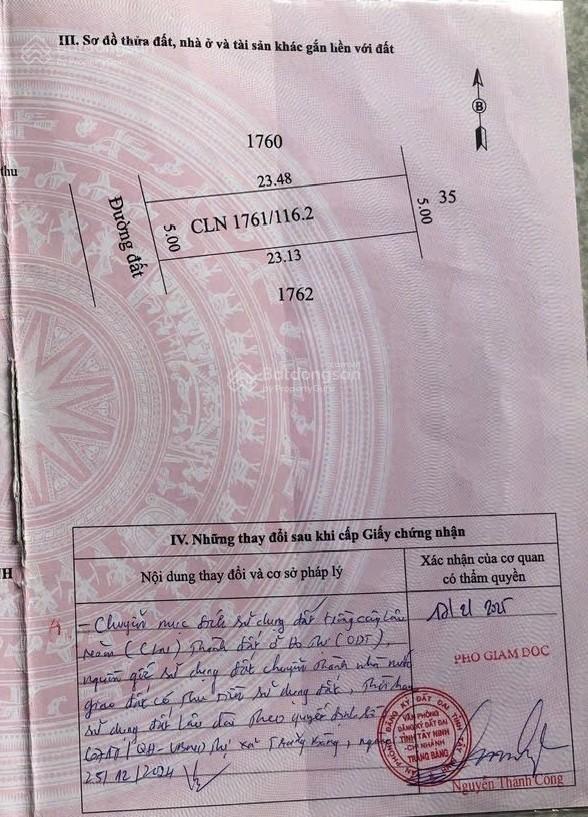 III. Sơ đồ thửa đất, nhà ở và tài sản khác gắn liền với đất
B
thu
1760
23.48
35
Đường đất
5.00
CLN 1761/116.2
5.00
23.13
1762
Batdongsan
by PropertyGuru
Batdongsan
by PropertyGuru
H
IV. Những thay đổi sau khi cấp Giấy chứng nhận
Nội dung thay đổi và cơ sở pháp lý
Xác nhận của cơ quan
có thẩm quyền
- Chuyển mục đích sử dụng đất trồng cây lâu
năm (CLN) thành đất ở đô thị (ODT),
người giữ sử dụng đất chuyển thành nhà nước
giao đất có thu tiền sử dụng đất, thời hạn
sử dụng đất lâu dài theo quyết định số
/QĐ-UBND thị xã Trảng Bàng, ngày
25/12/2024
/2/2025
PHÓ GIÁM ĐỐC
VĂN PHÒNG
ĐĂNG KÝ ĐẤT ĐAI
TỈNH TÂY NINH
CHI NHÁNH
TRẢNG BÀNG
Nguyễn Thành Công